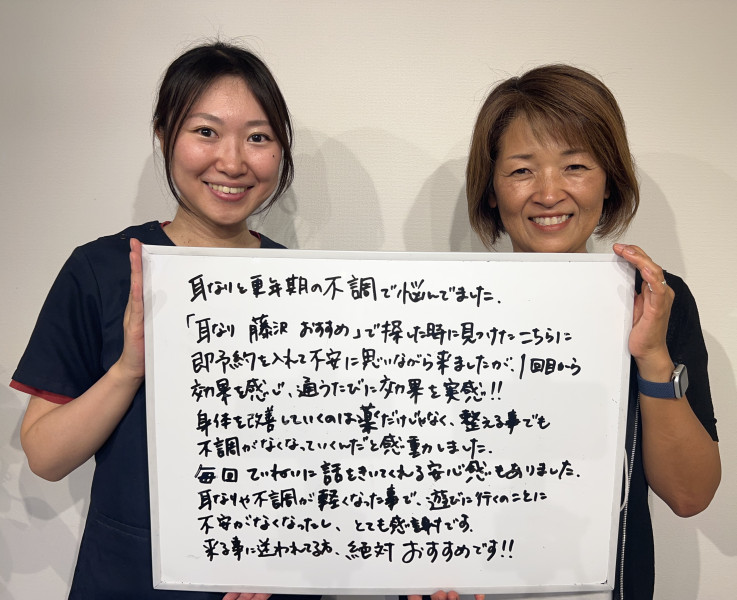 耳なりと更年期の不調で悩んでました.
「耳なり 藤沢 おすすめ」で探した時に見つけたこちらに
即予約を入れて不安に思いながら来ましたが、1回目から
効果を感じ、通うたびに効果を実感!!
身体を改善していくのは薬だけじゃなく、整える事でも
不調がなくなっていくんだと感動しました.
毎回 ていねいに話をきいてくれる安心感もありました.
耳なりや不調が軽くなった事で、遊びに行くことに
不安がなくなったし、とても感謝です.
来る事に迷われてる方、絶対 おすすめです!!